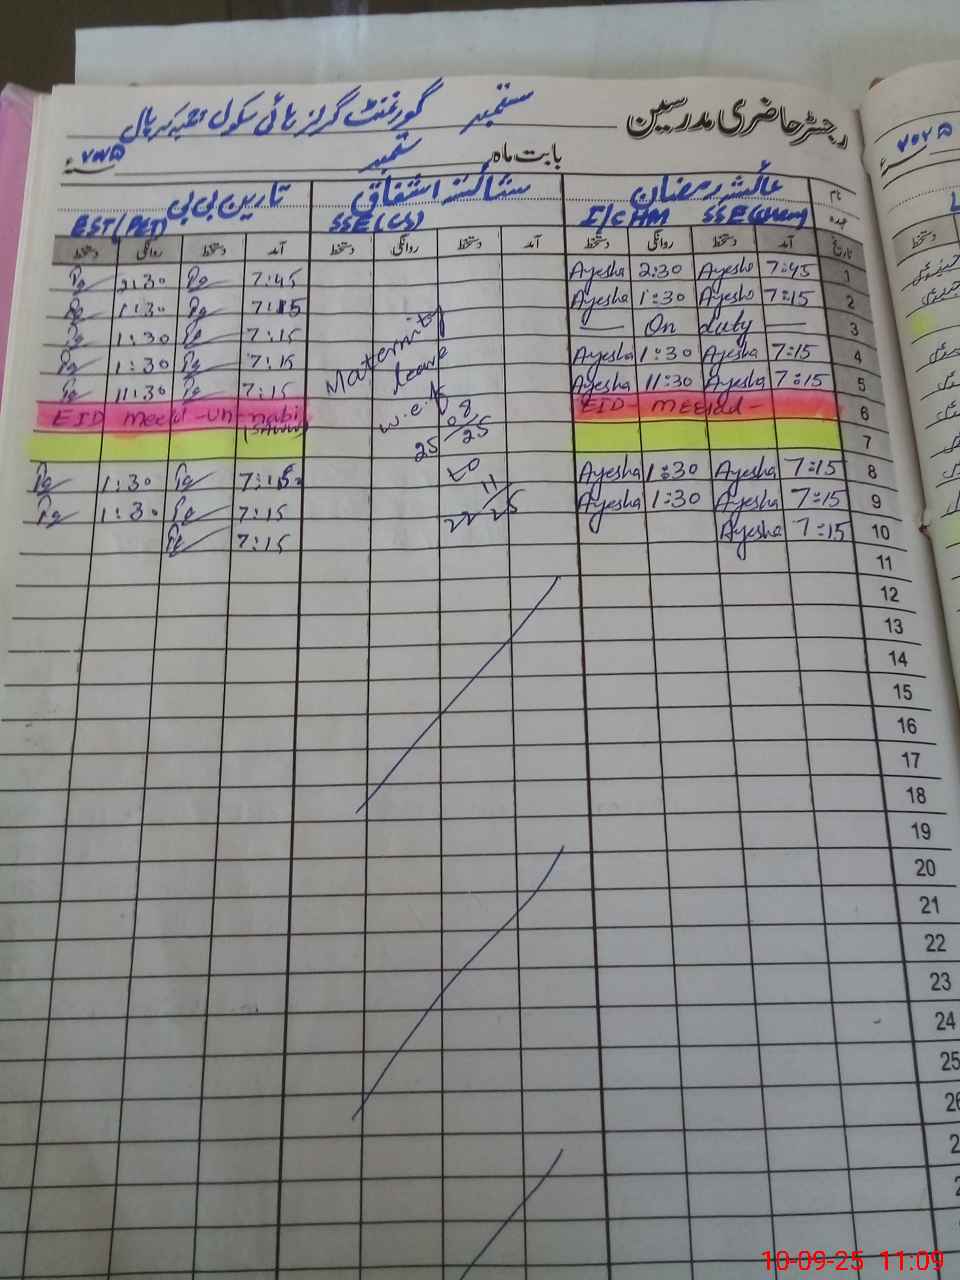 رجسٹر حاضری مدرسین ستمبر گورنمنٹ گرلز ہائی سکول
بابت ماہ ستمبر ۲۰۲۵ء
نام عائشہ رمضان شائستہ اشفاق نارین بی بی
عہدہ I/C HM SSE SSE (CS) EST (PET)
تاریخ آمد دستخط روانگی دستخط آمد دستخط روانگی دستخط آمد دستخط روانگی دستخط
1 7:45 Ayesha 2:30 Ayesha 7:45 2:30
2 7:15 Ayesha 1:30 Ayesha 7:15 1:30
3 — On duty — 7:15 1:30
4 7:15 Ayesha 1:30 Ayesha 7:15 1:30
5 7:15 Ayesha 11:30 Ayesha 7:15 11:30
6 EID - Meelad - EID Meelad -un-nabi
(SAWW)
7
8 7:15 Ayesha 1:30 Ayesha 7:15 1:30
9 7:15 Ayesha 1:30 Ayesha 7:15 1:30
10 7:15 Ayesha 7:15
Maternity
leave
w.e.f
25/08/25
to
22/11/25
11
12
13
14
15
16
17
18
19
20
21
22
23
24
25
26
10-09-25 11:09